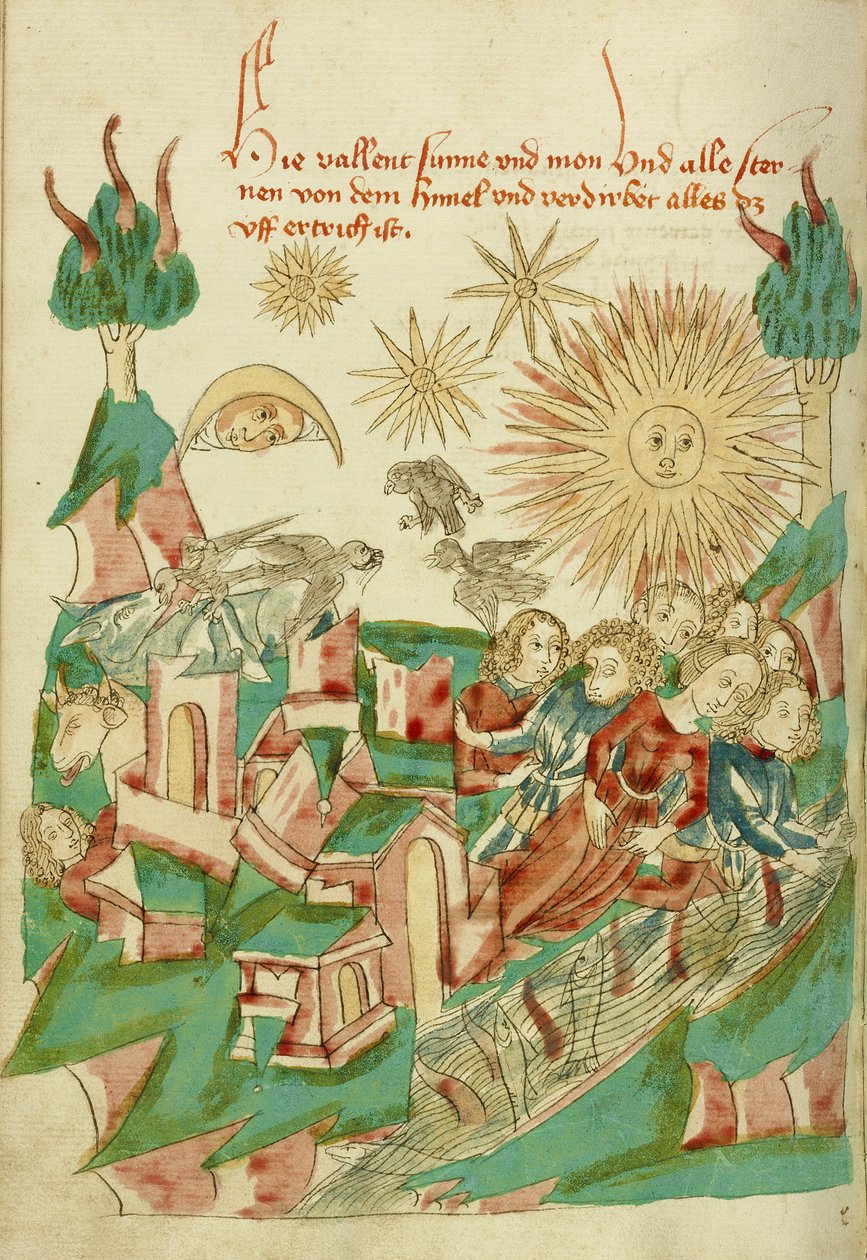 Hie vallent sunne vnd mon vnd alle ster-
nen von dem himel vnd verdirbet alles dz
vff ertrich ist.